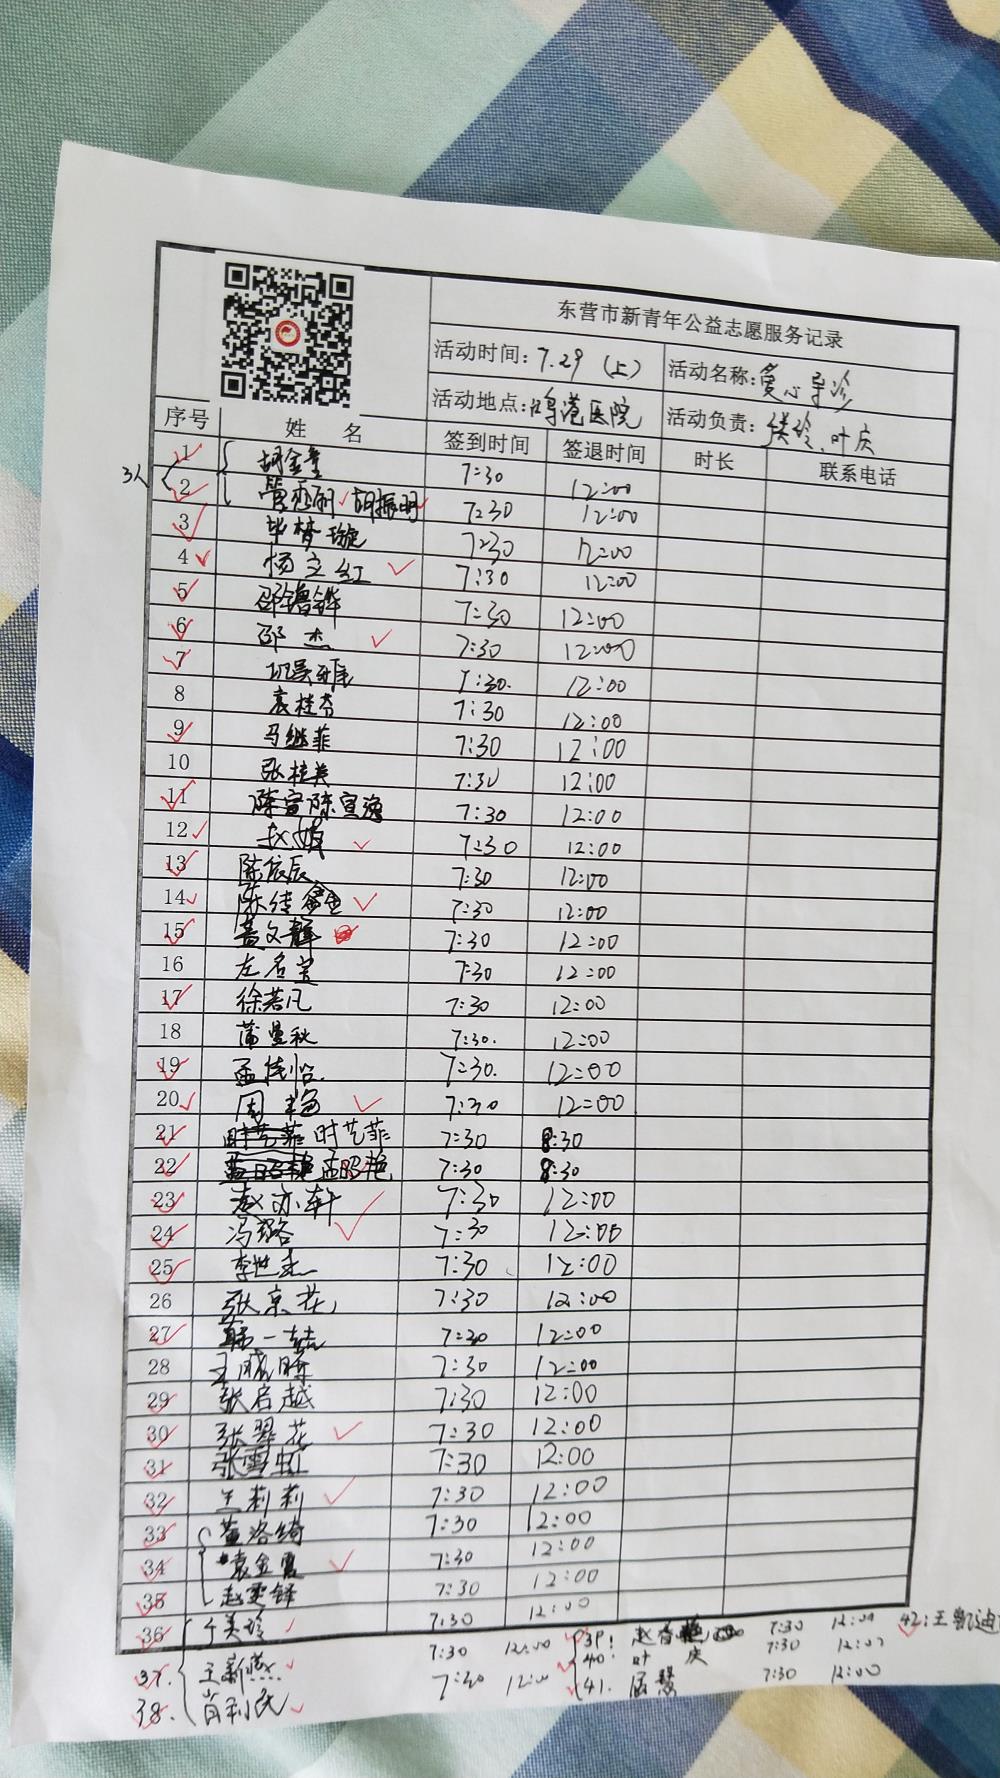 东营市新青年公益志愿服务记录
活动时间:7.29(上) 活动名称:爱心导诊
活动地点:鸣港医院 活动负责: 、叶庆
序号 姓名 签到时间 签退时间 时长 联系电话
3人
1 胡金 7:30 12:00
2 胡振明 7:30 12:00
3 毕梦璇 7:30 12:00
4 杨立红 7:30 12:00
5 邵 7:30 12:00
6 邵杰 7:30 12:00
7 7:30. 12:00
8 袁桂芬 7:30 12:00
9 马继菲 7:30 12:00
10 张桂英 7:30 12:00
11 陈宣陈宣逸 7:30 12:00
12 赵娟 7:30 12:00
13 陈宸辰 7:30 12:00
14 陈传鑫 7:30 12:00
15 盖文静 7:30 12:00
16 左名宝 7:30 12:00
17 徐若凡 7:30 12:00
18 蒲曼秋 7:30. 12:00
19 孟佳怡. 7:30. 12:00
20 周艳 7:30 12:00
21 时艺菲 时艺菲 7:30 8:30
22 孟昭艳 孟昭艳 7:30 8:30
23 赵亦轩 7:30 12:00
24 冯璐 7:30 12:00
25 李世 7:30 12:00
26 张京花 7:30 12:00
27 韩一喆 7:30 12:00
28 王晓 7:30 12:00
29 张启越 7:30 12:00
30 张翠花 7:30 12:00
31 张雪虹 7:30 12:00
32 王莉莉 7:30 12:00
33 董洛绮 7:30 12:00
34 袁金霞 7:30 12:00
35 赵雯铎 7:30 12:00
36 于美玲 7:30 12:00
37. 王新燕 7:30 12:00
38. 肖利民 7:30 12:00
39: 赵香 7:30 12:00
40: 叶庆 7:30 12:00
41. 屈慧 7:30 12:00
42: 王凯迪